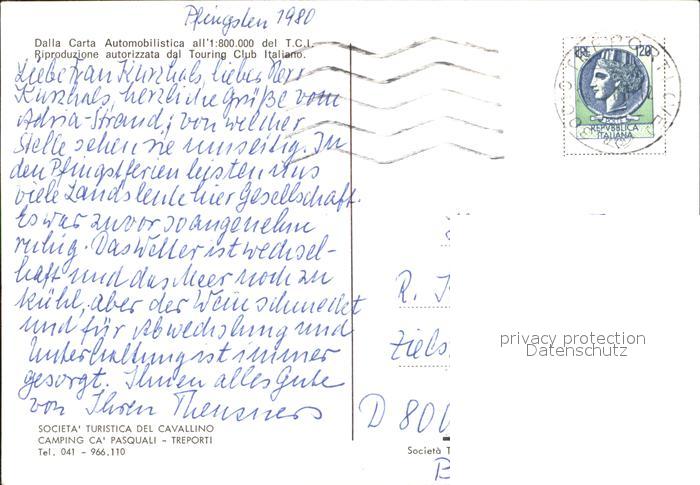 Pfingsten 1980
Dalla Carta Automobilistica all'1:800.000 del T.C.I.
Riproduzione autorizzata dal Touring Club Italiano.
Liebe Frau Kurzhals, lieber Herr
Kurzhals, herzliche Grüße vom
Adria-Strand; von welcher
Stelle sehen Sie umseitig. In
den Pfingstferien leisten uns
viele Landsleute hier Gesellschaft.
Es war zuvor so angenehm
ruhig. Das Wetter ist wechsel-
haft und das Meer noch zu
kühl, aber der Wein schmeckt
und für Abwechslung und
Unterhaltung ist immer
gesorgt. Ihnen alles Gute
von Ihren
SOCIETA' TURISTICA DEL CAVALLINO
CAMPING CA' PASQUALI - TREPORTI
Tel. 041 - 966.110
LIRE 120
REPVBBLICA
ITALIANA
R.
Ziels
privacy protection
Datenschutz
D 800
Società T